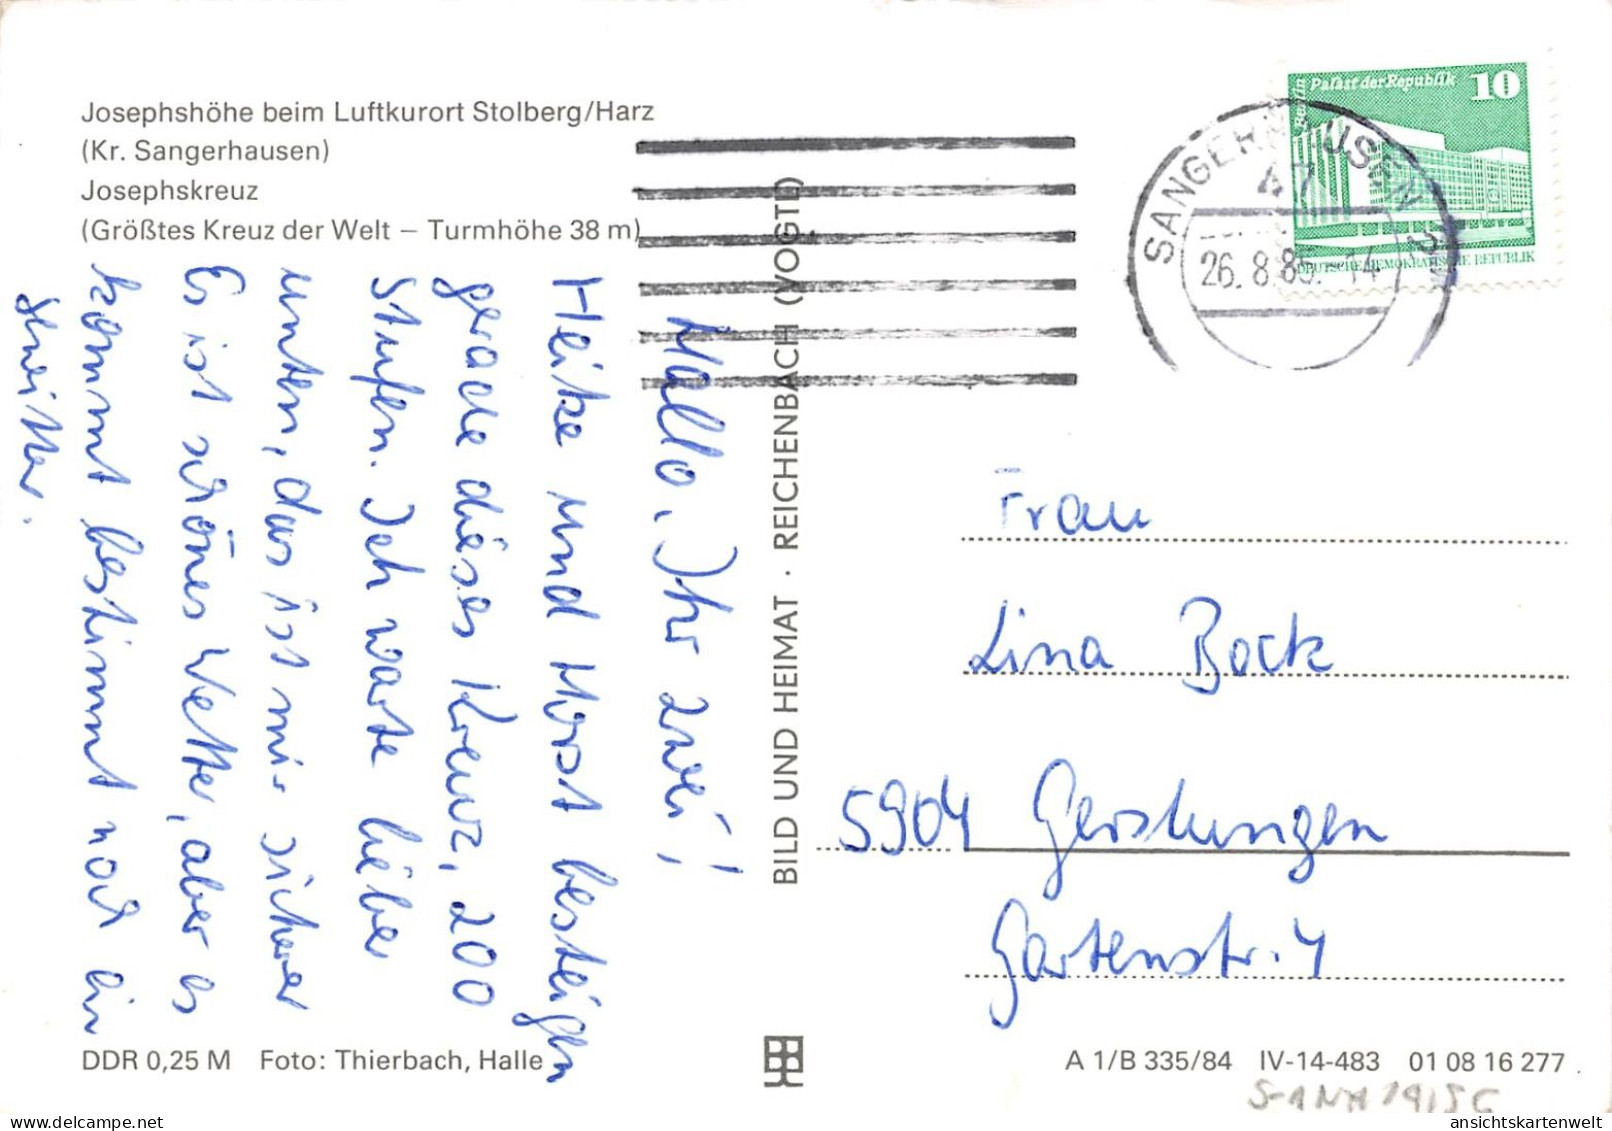 Josephshöhe beim Luftkurort Stolberg/Harz
(Kr. Sangerhausen)
Josephskreuz
(Größtes Kreuz der Welt – Turmhöhe 38 m)
Hallo, Ihr zwei!
Heike und Horst besteigen
gerade dieses Kreuz, 200
Stufen. Ich warte lieber
unten, das ist mir sicherer
Es ist schönes Wetter, aber es
kommt bestimmt noch ein
Gewitter.
DDR 0,25 M Foto: Thierbach, Halle
BILD UND HEIMAT · REICHENBACH (VOGTL)
Berlin
Palast der Republik 10
DEUTSCHE DEMOKRATISCHE REPUBLIK
SANGERHAUSEN
47
26.8.85.-14
Frau
Lina Bock
5904 Gerstungen
Gartenstr. 4
A 1/B 335/84 IV-14-483 01 08 16 277
ansichtskartenwelt